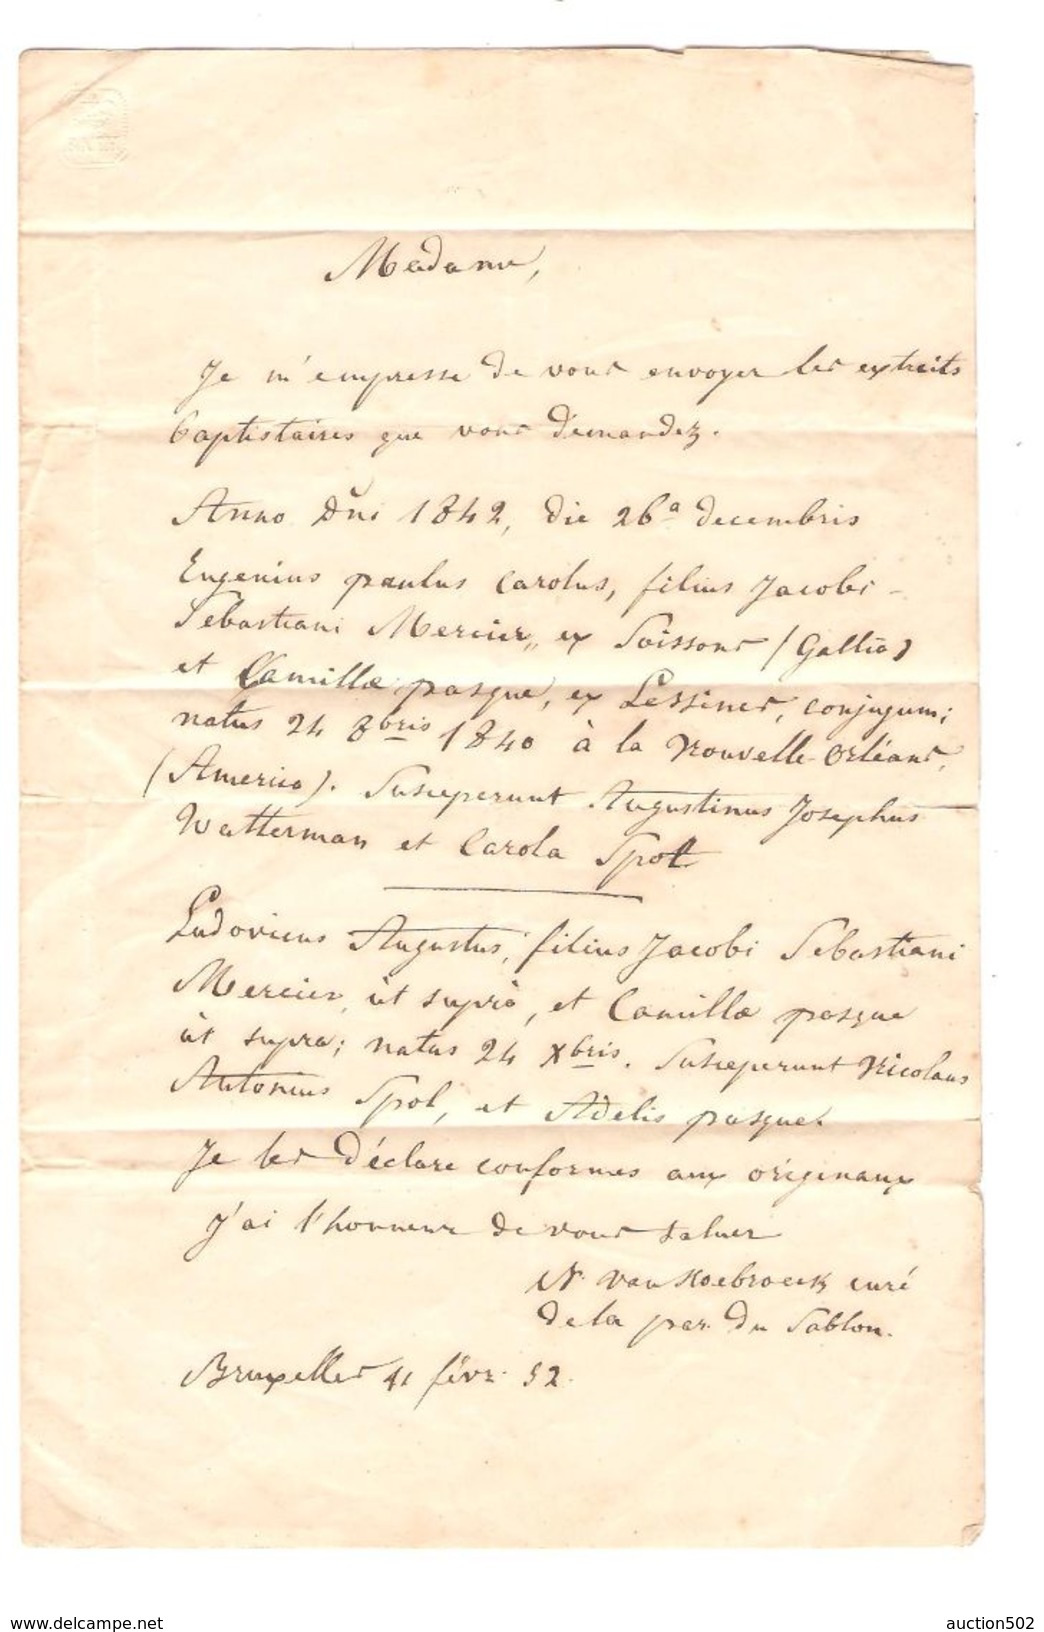 Madame,
Je m'empresse de vous envoyer les extraits
baptistaires que vous demandez.
Anno Dni 1842, die 26a decembris
Eugenius paulus Carolus, filius Jacobi-
Sebastiani Mercier, ex Soissons (Gallia)
et Camillæ pasque, ex Lessines, conjugum;
natus 24 8bris 1840 à la Nouvelle-Orléans,
(America). Susceperunt Augustinus Josephus
Watterman et Carola Spol
Ludovicus Augustus, filius Jacobi Sebastiani
Mercier, ut suprà, et Camillæ pasque
ut supra; natus 24 Xbris. Susceperunt Nicolaus
Antonius Spol, et Adelis pasque.
Je les déclare conformes aux originaux
J'ai l'honneur de vous saluer
N. van Hoebroeck curé
de la par. du Sablon.
Bruxelles févr. 52.
www.delcampe.net
auction502